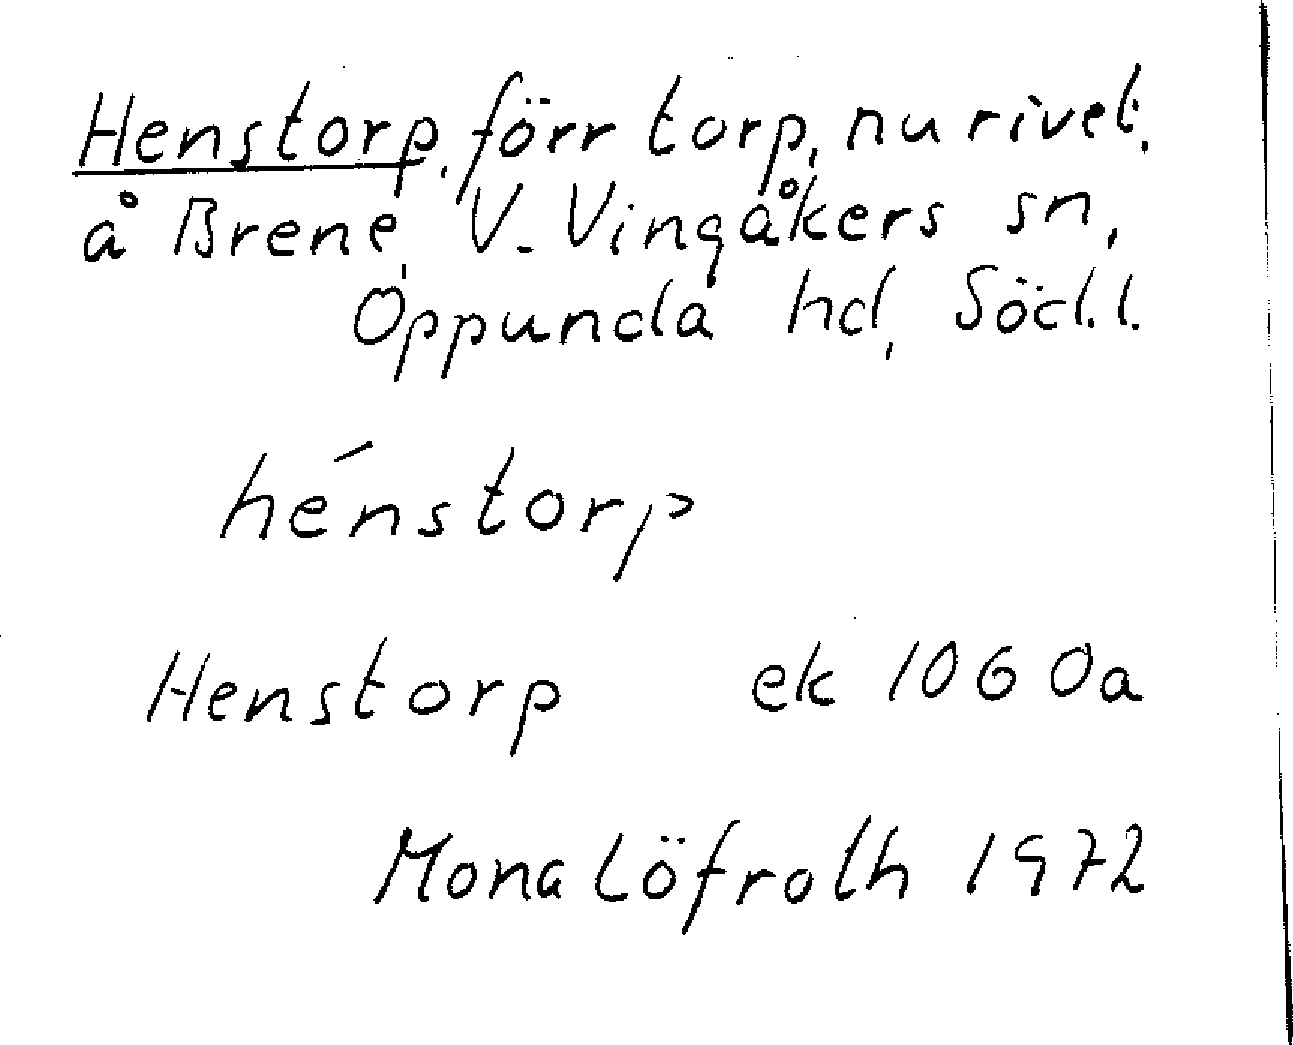 Henstorp, förr torp, nu rivet,
å Brene, V. Vingåkers sn,
Oppunda hd, Södl.
hénstorp
Henstorp ek 1060a
Mona Löfroth 1972